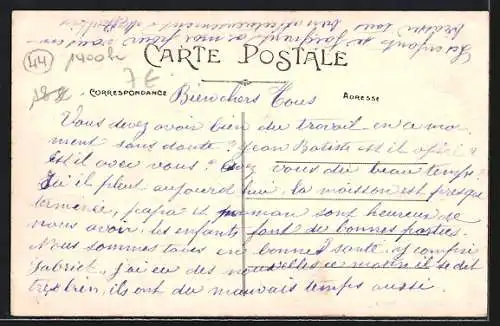 Les enfants se joignent a moi pour vous em-
brasser tous bien affectueusement
CARTE POSTALE
44
1400h
7€
18€
CORRESPONDANCE
ADRESSE
Bien chers Tous
Vous devez avoir bien du travail en ce mo-
ment sans doute? Jean Batiste est il
Est il avec vous? Avez vous du beau temps?
Ici il pleut aujourd hui, la moisson est presque
terminée, papa et maman sont heureux de
nous avoir, les enfants font de bonnes parties.
Nous sommes tous en bonne santé y compris
Gabriel, j'ai eu des nouvelles ce matin il se dit
très bien, ils ont du mauvais temps aussi.